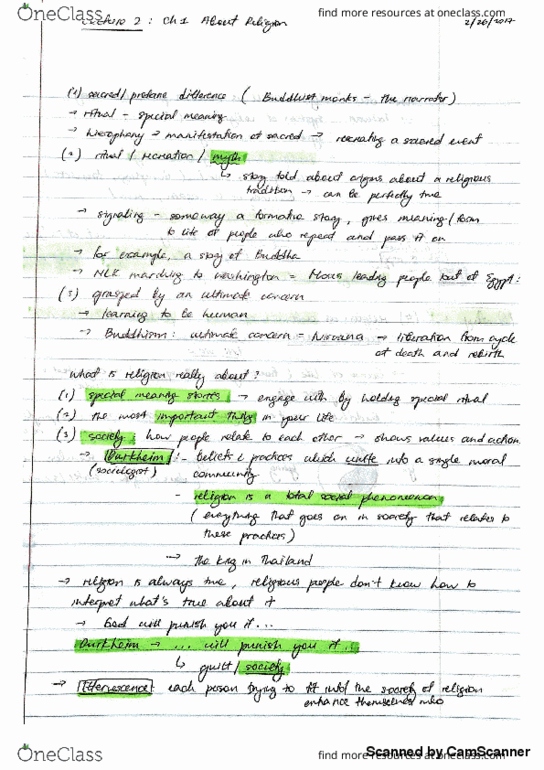 OneClass
find more resources at oneclass.com
Lecture 2 : Ch 1 About Religion
2/26/2017
(1) sacred/ profane difference : ( Buddhist monks - the narrator)
→ ritual - special meaning
→ hierophany → manifestation of sacred → recreating a sacred event
(2) ritual / recreation / myth
↳ story told about origins about a religious
tradition → can be perfectly true
→ signaling - someway a formative story, gives meaning / form
to life of people who repeat and pass it on
→ for example, a story of Buddha
→ MLK marching to Washington = Moses leading people out of Egypt.
(3) grasped by an ultimate concern
→ learning to be human
→ Buddhism : ultimate concern = Nirvana → liberation from cycle
of death and rebirth
What is religion really about?
(1) special meaning stories → engage with by holding special ritual
(2) the most important thing in your life
(3) society : how people relate to each other → shows values and action
→ Durkheim : - beliefs & practices which unite into a single moral
(sociologist)
community
- religion is a total social phenomenon
( everything that goes on in society that relates to
these practices)
→ the king in Thailand
→ religion is always true, religious people don't know how to
interpret what's true about it
→ God will punish you if ...
Durkheim → ... will punish you if ...
↳ guilt / society
→ Effervescence : each person trying to fit into the society of religion
enhance themselves into
Scanned by CamScanner
OneClass
find more resources at oneclass.com